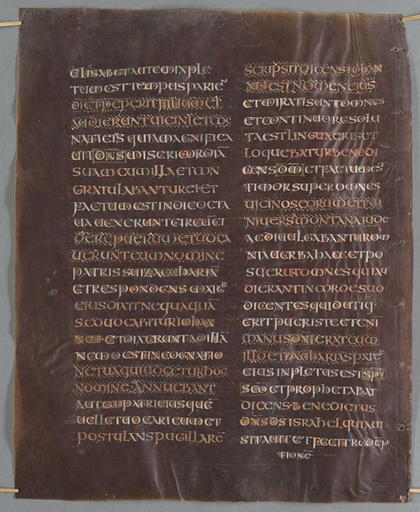 ELISABETAUTEMINPLE
TUMESTTEMPUSPARIE
DIETPEPERITFILIUMET
AUDIERUNTUICINIETCOG
NATIEIUSQUIAMAGNIFICA
UITDNSMISERICORDIA
SUAMCUMILLAETCON
GRATULABANTUREIET
FACTUMESTINDIEOCTA
UAUENERUNTCIRCUMCI
DEREPUERUMETUOCA
UERUNTEUMNOMINE
PATRISSUIZACCHARIA
ETRESPONDENSMATER
EIUSDIXITNEQUAQUA
SEDUOCABITURIOHAN
NESETDIXERUNTADILLA
NEMOESTINCOGNATIO
NETUAQUIUOCETURHOC
NOMINEANNUEBANT
AUTEMPATRIEIUSQUE
UELLETUOCARIEUMET
POSTULANSPUGILLARE
SCRIPSITDICENSIOHAN
NESESTNOMENEIUS
ETMIRATISUNTOMNES
ETCONTINUORESOLU
TAESTLINGUAEIUSET
LOQUEBATURBENEDI
CENSDMETFACTUSEST
TIMORSUPEROMNES
UICINOSEORUMETINU
NIUERSAMONTANAIUDE
AEDIUULGABANTUROM
NIAUERBAHAECETPO
SUERUNTOMNESQUIAU
DIERANTINCORDESUO
DICENTESQUIDUTIQ
ERITPUERISTEETENI
MANUSDNIERATCUM
ILLOETZACHARIASPATER
EIUSINPLETUSESTSPU
SCOETPROPHETABAT
DICENSBENEDICTUS
DNSDSISRAHELQUIAUI
SITAUITETFECITREDEP
TIONE